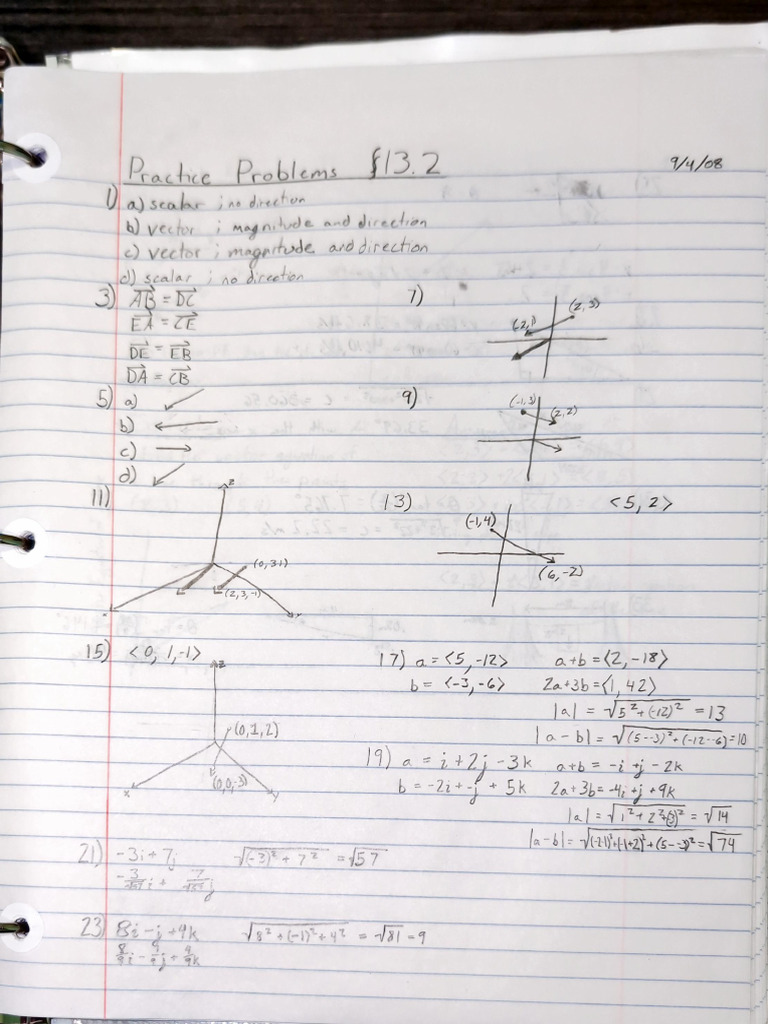 Practice Problems §13.2 9/4/08
1) a) scalar ; no direction
b) vector ; magnitude and direction
c) vector ; magnitude and direction
d) scalar ; no direction
3) AB = DC
EA = CE
DE = EB
DA = CB
7)
(2, 3)
(2,1)
5) a)
b)
c)
d)
9)
(-1,3)
(2,2)
11)
z
(0,3,1)
(2,3,-1)
x y
13) <5, 2>
(-1,4)
(6,-2)
15) <0, 1, -1>
z
(0,1,2)
(0,0,-3)
x y
17) a = <5, -12> a+b = <2, -18>
b = <-3, -6> 2a+3b = <1, 42>
|a| = √5²+(-12)² = 13
|a-b| = √(5--3)²+(-12--6) = 10
19) a = i + 2j - 3k a+b = -i +j - 2k
b = -2i + -j + 5k 2a+3b = -4i +j +9k
|a| = √1²+2²+(-3)² = √14
|a-b| = √(-2-1)²+(-1+2)²+(5--3)² = √74
21) -3i + 7j √(-3)² + 7² = √57
-3/√57 i + 7/√57 j
23) 8i - j + 4k √8² + (-1)² + 4² = √81 = 9
8/9 i - 9/9 j + 4/9 k